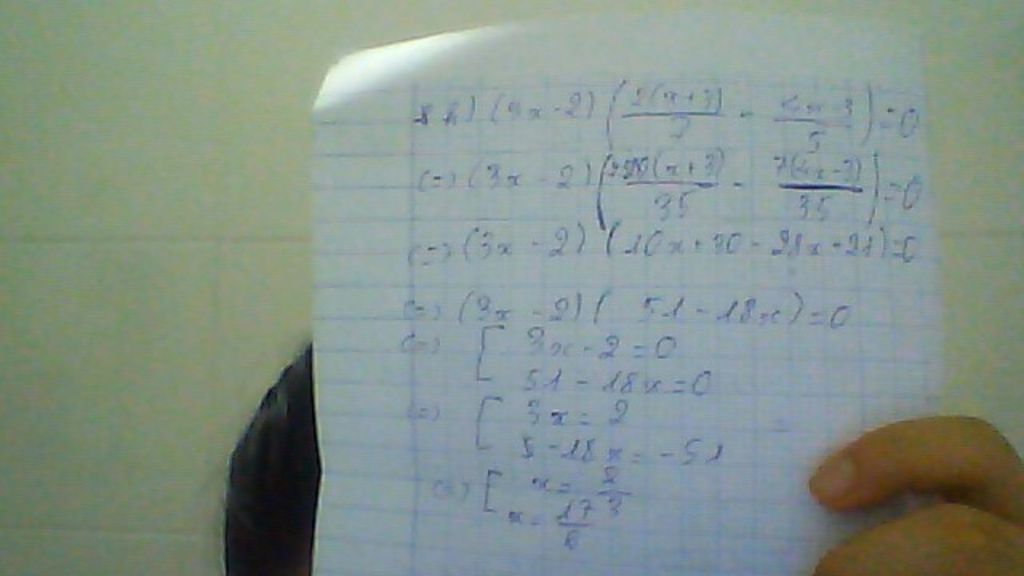 (3x - 2) (2(x+3)/7 - (4x-3)/5) = 0
(=) (3x - 2) (10(x+3)/35 - 7(4x-3)/35) = 0
(=) (3x - 2) (10x + 30 - 28x + 21) = 0
(=) (3x - 2) ( 51 - 18x) = 0
(=) [ 3x - 2 = 0
51 - 18x = 0
(=) [ 3x = 2
-18x = -51
(=) [ x = 2/3
x = 17/6